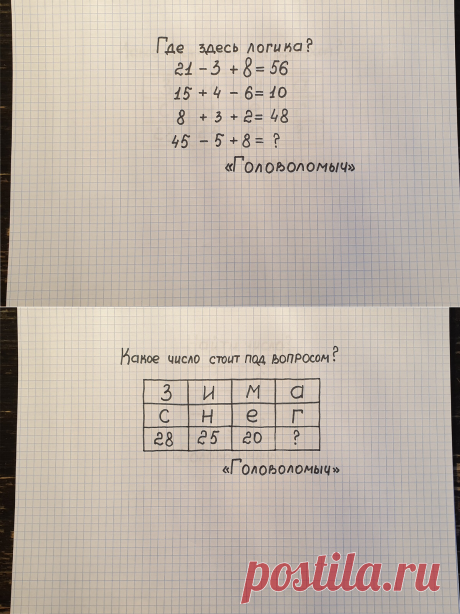 Где здесь логика?
21 - 3 + 8 = 56
15 + 4 - 6 = 10
8 + 3 + 2 = 48
45 - 5 + 8 = ?
«Головоломыч»
Какое число стоит под вопросом?
З и м а
с н е г
28 25 20 ?
«Головоломыч»
postila.ru